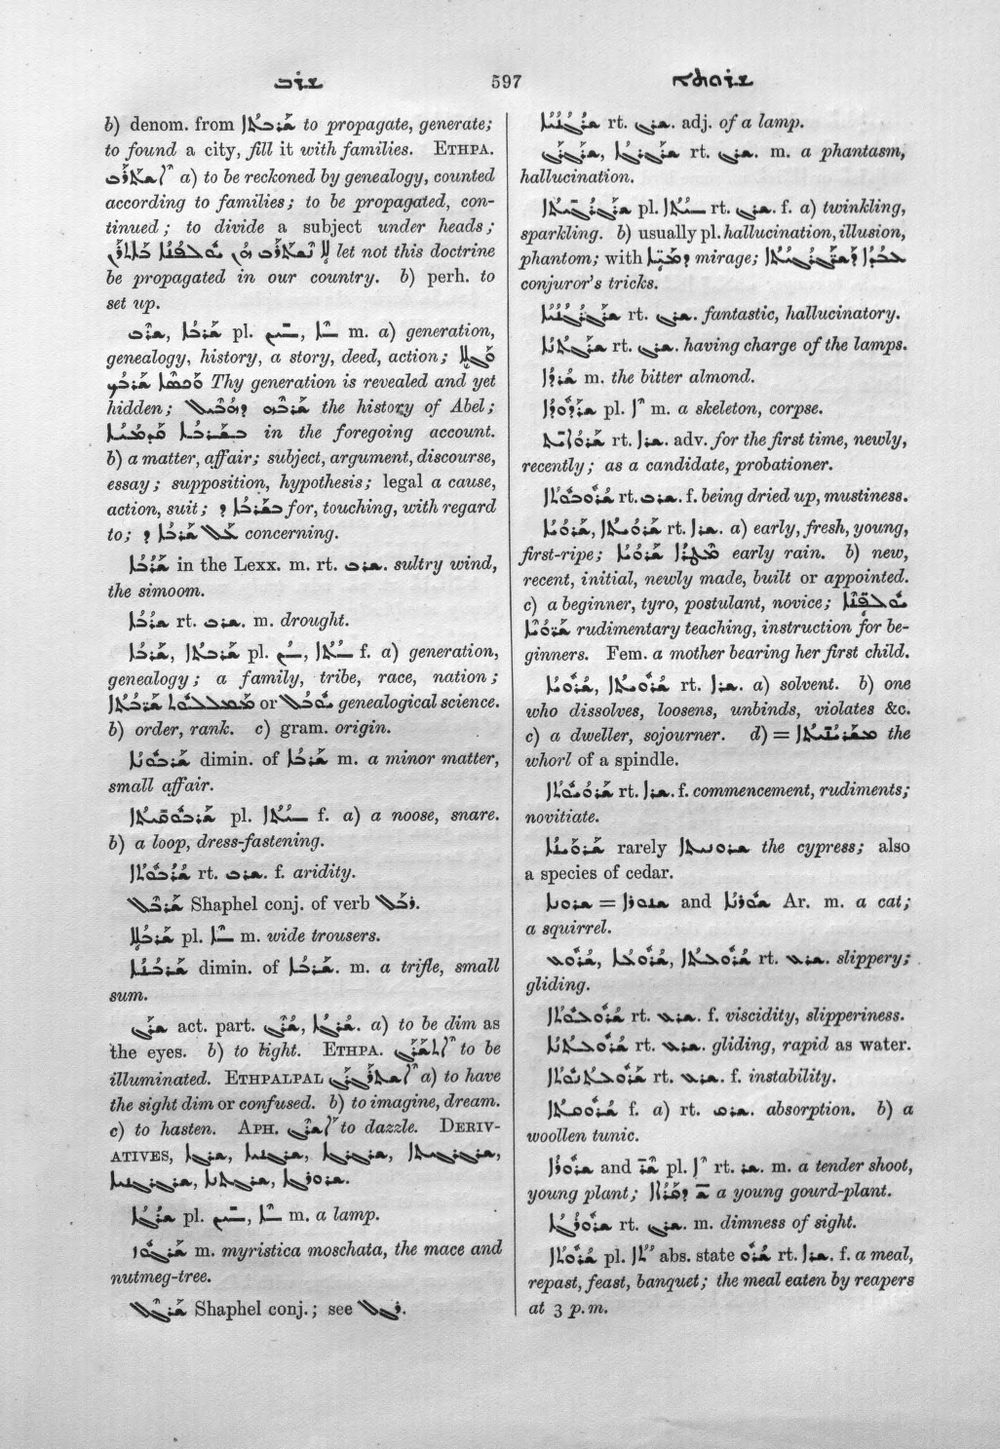 ܫܪܒ 597 ܫܪܘܬܐ
b) denom. from ܫܪܒܬܐ to propagate, generate;
to found a city, fill it with families. ETHPA.
ܐܫܬܪܒ a) to be reckoned by genealogy, counted
according to families; to be propagated, con-
tinued; to divide a subject under heads;
ܠܐ ܢܫܬܪܒ ܗܢ ܝܘܠܦܢܐ ܒܐܬܪܢ let not this doctrine
be propagated in our country. b) perh. to
set up.
ܫܪܒ, ܫܪܒܐ pl. m. a) generation,
genealogy, history, a story, deed, action; ܓܠܐ
ܘܟܣܐ ܫܪܒܟ Thy generation is revealed and yet
hidden; ܫܪܒܗ ܕܗܒܝܠ the history of Abel;
ܒܫܪܒܐ ܩܕܡܝܐ in the foregoing account.
b) a matter, affair; subject, argument, discourse,
essay; supposition, hypothesis; legal a cause,
action, suit; ܒܫܪܒܐ ܕ for, touching, with regard
to; ܥܠ ܫܪܒܐ ܕ concerning.
ܫܪܒܐ in the Lexx. m. rt. ܫܪܒ. sultry wind,
the simoom.
ܫܪܒܐ rt. ܫܪܒ. m. drought.
ܫܪܒܐ, ܫܪܒܬܐ pl. f. a) generation,
genealogy; a family, tribe, race, nation;
ܡܡܠܠܘܬ ܫܪܒܬܐ or ܝܘܒܠ genealogical science.
b) order, rank. c) gram. origin.
ܫܪܒܘܢܐ dimin. of ܫܪܒܐ m. a minor matter,
small affair.
ܫܪܒܘܩܝܬܐ pl. f. a) a noose, snare.
b) a loop, dress-fastening.
ܫܪܒܘܬܐ rt. ܫܪܒ. f. aridity.
ܫܪܒܠ Shaphel conj. of verb ܪܒܠ.
ܫܪܒܠܐ pl. m. wide trousers.
ܫܪܒܢܐ dimin. of ܫܪܒܐ. m. a trifle, small
sum.
ܫܪܓ act. part. ܫܪܓ, ܫܪܓܐ. a) to be dim as
the eyes. b) to light. ETHPA. ܐܫܬܪܓ to be
illuminated. ETHPALPAL ܐܫܬܪܓܪܓ a) to have
the sight dim or confused. b) to imagine, dream.
c) to hasten. APH. ܐܫܪܓ to dazzle. DERIV-
ATIVES, ܫܪܓܐ, ܫܪܓܢܝܐ, ܫܪܓܪܓܐ, ܫܪܓܪܓܝܬܐ,
ܫܪܓܪܓܢܝܐ, ܫܪܓܬܢܐ, ܫܪܘܪܓܐ.
ܫܪܓܐ pl. m. a lamp.
ܫܪܓܘܙ m. myristica moschata, the mace and
nutmeg-tree.
ܫܪܓܠ Shaphel conj.; see ܪܓܠ.
ܫܪܓܢܝܐ rt. ܫܪܓ. adj. of a lamp.
ܫܪܓܪܓ, ܫܪܓܪܓܐ rt. ܫܪܓ. m. a phantasm,
hallucination.
ܫܪܓܪܓܝܬܐ pl. rt. ܫܪܓ. f. a) twinkling,
sparkling. b) usually pl. hallucination, illusion,
phantom; with ܕܡܝܐ mirage;
conjuror's tricks.
ܫܪܓܪܓܢܝܐ rt. ܫܪܓ. fantastic, hallucinatory.
ܫܪܓܬܢܐ rt. ܫܪܓ. having charge of the lamps.
ܫܪܕܐ m. the bitter almond.
ܫܪܕܘܕܐ pl. m. a skeleton, corpse.
ܫܪܘܐܝܬ rt. ܫܪܐ. adv. for the first time, newly,
recently; as a candidate, probationer.
ܫܪܘܒܘܬܐ rt. ܫܪܒ. f. being dried up, mustiness.
ܫܪܘܝܐ, ܫܪܘܝܬܐ rt. ܫܪܐ. a) early, fresh, young,
first-ripe; ܡܛܪܐ ܫܪܘܝܐ early rain. b) new,
recent, initial, newly made, built or appointed.
c) a beginner, tyro, postulant, novice; ܝܘܠܦܢܐ
ܫܪܘܝܐ rudimentary teaching, instruction for be-
ginners. Fem. a mother bearing her first child.
ܫܪܘܝܐ, ܫܪܘܝܬܐ rt. ܫܪܐ. a) solvent. b) one
who dissolves, loosens, unbinds, violates &c.
c) a dweller, sojourner. d) = the
whorl of a spindle.
ܫܪܘܝܘܬܐ rt. ܫܪܐ. f. commencement, rudiments;
novitiate.
ܫܪܘܝܢܐ rarely the cypress; also
a species of cedar.
ܫܪܘܢܐ = and ܫܘܪܢܐ Ar. m. a cat;
a squirrel.
ܫܪܘܥ, ܫܪܘܥܐ, ܫܪܘܥܬܐ rt. ܫܪܥ. slippery;
gliding.
ܫܪܘܥܘܬܐ rt. ܫܪܥ. f. viscidity, slipperiness.
ܫܪܘܥܬܢܐ rt. ܫܪܥ. gliding, rapid as water.
ܫܪܘܥܬܢܘܬܐ rt. ܫܪܥ. f. instability.
ܫܪܘܦܬܐ f. a) rt. ܫܪܦ. absorption. b) a
woollen tunic.
ܫܪܘܪܐ and pl. rt. ܫܪ. m. a tender shoot,
young plant; a young gourd-plant.
ܫܪܘܪܓܐ rt. ܫܪܓ. m. dimness of sight.
ܫܪܘܬܐ pl. abs. state ܫܪܘ rt. ܫܪܐ. f. a meal,
repast, feast, banquet; the meal eaten by reapers
at 3 p.m.